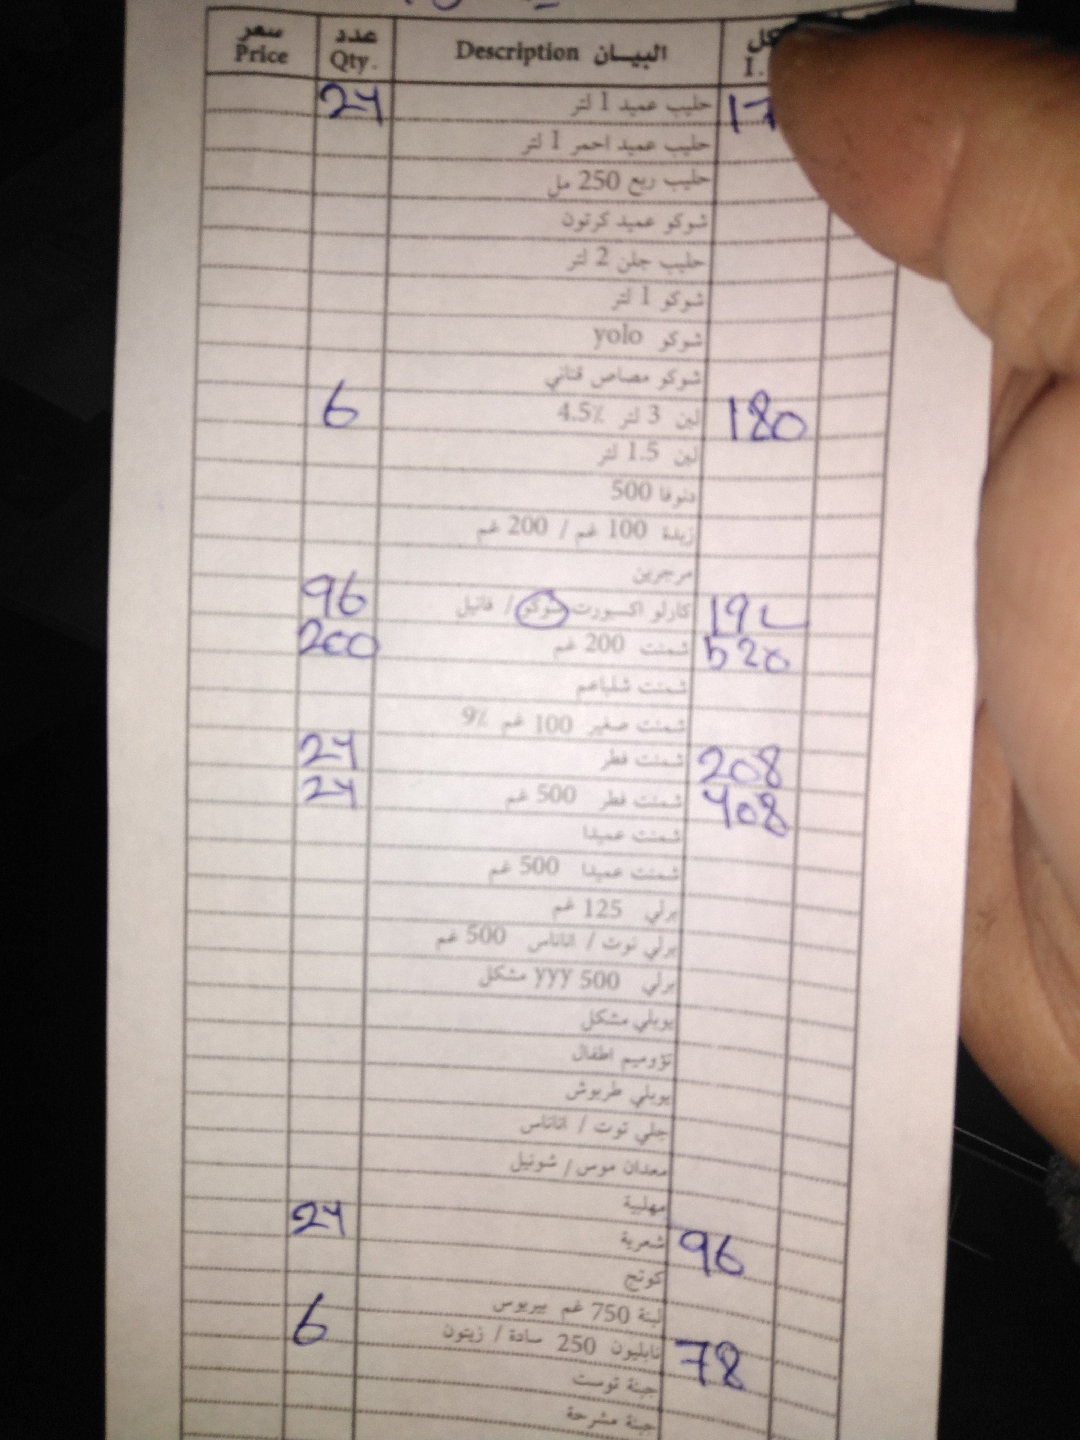 سعر عدد البيـــان Description
Price Qty.
24 حليب عميد 1 لتر
حليب عميد احمر 1 لتر
حليب ربع 250 مل
شوكو عميد كرتون
حليب جلن 2 لتر
شوكو 1 لتر
شوكو yolo
شوكو مصاص قناني
6 لبن 3 لتر 4.5٪ 180
لبن 1.5 لتر
دنوفا 500
زبدة 100 غم / 200 غم
مرجرين
96 كارلو اكسبورت شوكو / فانيل 192
200 شمنت 200 غم 520
شمنت شلباعم
شمنت صغير 100 غم 9٪
24 شمنت فطر 208
24 شمنت فطر 500 غم 408
شمنت عميدا
شمنت عميدا 500 غم
برلي 125 غم
برلي توت / اناناس 500 غم
برلي yyy 500 مشكل
يوبلي مشكل
تؤوميم اطفال
يوبلي طربوش
جلي توت / اناناس
معدان موس / شونيل
مهلبية
24 شعرية 96
كوتج
لبنة 750 غم بيريوس
6 نابليون 250 سادة / زيتون 78
جبنة توست
جبنة مشرحة